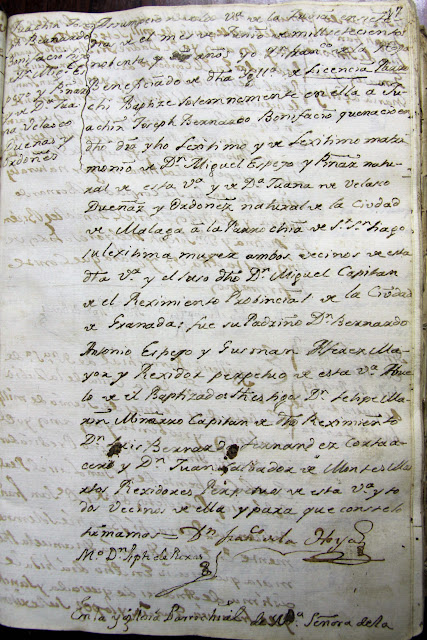 37
quachin Jose
Bernardo
Bonifacio
y Miguel Es
pejo y Pinar
de Dª Jua
na Velasco
Dueñaz y
Ordoñez
de la Vª de la
gra de el mes de Junio de mill setecientos
ochenta y años yo Dn franco de la Hoya
Beneficiado de dha Iglª de Licencia
Baptize solemnemente en ella a Jo
achin Joseph Bernardo Bonifacio que nacio en
dho dia hijo Lexitimo y de Lexitimo matri
monio de Dn Miguel Espejo y Pinar natu
ral de esta Vª y de Dª Juana de Velasco
Dueñaz y Ordoñez natural de la Ciudad
de Malaga a la Parrochia de Sr Sn Tiago
su lexitima muger ambos vecinos de esta
dha Vª y el suso dho Dn Miguel Capitan
de el Reximiento Provincial de la Ciudad
de Granada; fue su Padrino Dn Bernardo
Antonio Espejo y Gusman Alferez Ma
yor y Rexidor perpetuo de esta Vª Abue
lo de el Baptizado: testigos Dn felipe Ma
rin Capitan de dho Reximiento
Dn Luis Bernardo Fernandez Cortaa
cero y Dn Juan Salvador de Montes
Rexidores Perpetuos de esta Vª y to
dos Vecinos de ella y para que conste lo
firmamos = Dn franco de la Hoya
Mo Dn Jph de Roxas
En la yglesia Parrochial de Nª Señora de la